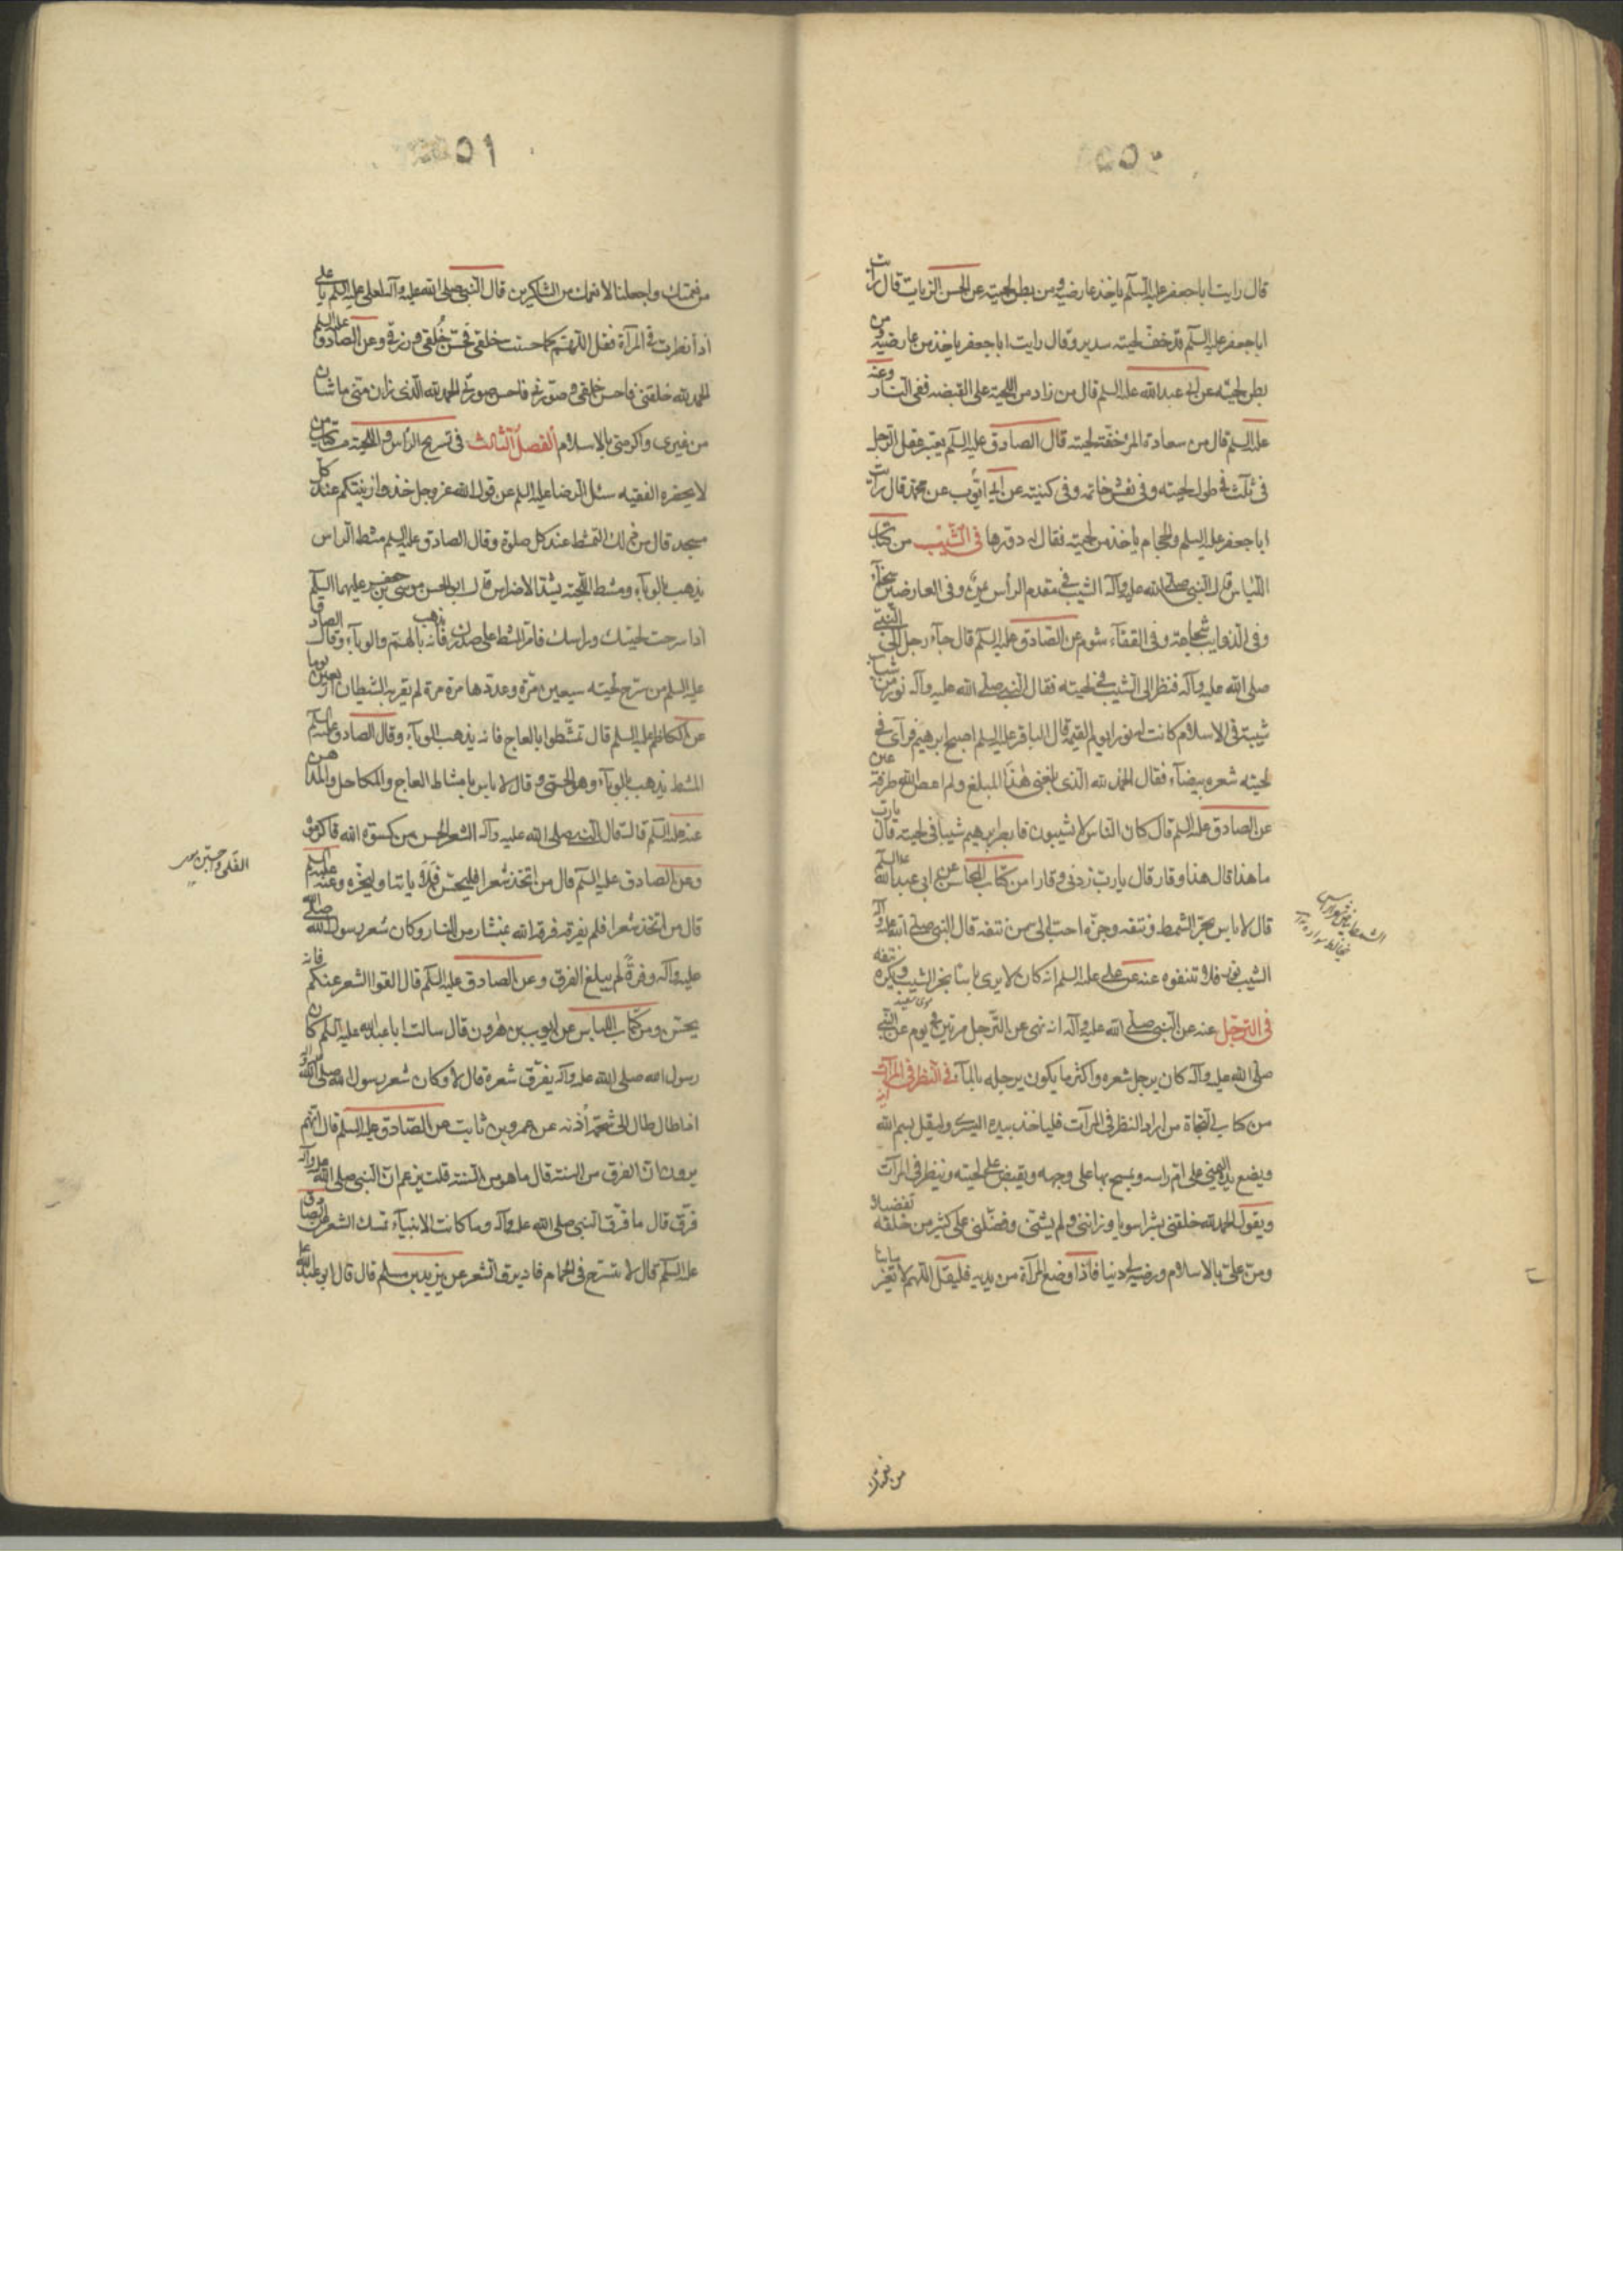 قال رايت ابا جعفر عليه السلم ياخذ عارضيه ومن بطن لحيته عن الحسن الزيات قال رايت
ابا جعفر عليه السلم قد خفف لحيته سدير وقال رايت ابا جعفر ياخذ من عارضيه ومن
بطن لحيته عن ابى عبد الله عليه السلم قال من زاد من اللحية على القبضة ففى النار وعنه
عليه السلم قال من سعادة المرء خفة لحيته قال الصادق عليه السلم يعتبر عقل الرجل
فى ثلث فى طول لحيته وفى نقش خاتمه وفى كنيته عن ابى ايوب عن محمد قال رايت
ابا جعفر عليه السلم والحجام ياخذ من لحيته فقال له دورها فى الشيب من كتاب
اللباس قال النبى صلى الله عليه وآله الشيب فى مقدم الرأس يمن وفى العارضين سخآء
وفى الذوايب شجاعة وفى القفآء شوم عن الصادق عليه السلم قال جآء رجل الى النبى
صلى الله عليه وآله فنظر الى الشيب فى لحيته فقال النبى صلى الله عليه وآله نور من شاب
شيبة فى الاسلام كانت له نورا يوم القيمة قال الباقر عليه السلم اصبح ابرهيم فرآى فى
لحيته شعره بيضآء فقال الحمد لله الذى بلغنى هذا المبلغ ولم اعص الله طرفة عين
عن الصادق عليه السلم قال كان الناس لا يشيبون فابصر ابرهيم شيبا فى لحيته قال يارب
ما هذا قال هذا وقار قال يارب زدنى وقارا من كتاب المحاسن عن ابى عبد الله عليه السلم
قال لا باس بجز الشمط ونتفه وجزه احب الى من نتفه قال النبى صلى الله عليه وآله
الشيب نور فلا تنتفوه عنه عن على عليه السلم انه كان لا يرى باسا بجز الشيب ويكره نتفه
فى الترجل عنه عن النبى صلى الله عليه وآله انه نهى عن الترجل مرتين فى يوم عن النبى
صلى الله عليه وآله كان يرجل شعره واكثر ما يكون يرجله بالمآء فى النظر فى المرآت
من كتاب النجاة من اراد النظر فى المرآت فلياخذ بيده اليسرى وليقل بسم الله
ويضع يده اليمنى على ام راسه ويمسح بها على وجهه ويقبض على لحيته وينظر فى المرآت
ويقول الحمد لله خلقنى بشرا سويا وزاننى ولم يشنى وفضلنى على كثير من خلقه تفضيلا
ومن على بالاسلام ورضيه لى دينا فاذا وضع المرآة من يديه فليقل اللهم لا تغير مابنا
من نعمتك
من نعمتك واجعلنا لانعمك من الشاكرين قال النبى صلى الله عليه وآله لعلى عليه السلم يا على
اذا نظرت فى المرآة فقل اللهم كما حسنت خلقى فحسن خلقى ورزقى وعن الصادق عليه السلم
الحمد لله خلقنى فاحسن خلقى وصورنى فاحسن صورتى الحمد لله الذى زان منى ما شان
من غيرى واكرمنى بالاسلام الفصل الثالث فى تسريح الراس واللحية من كتاب من
لا يحضره الفقيه سئل الرضا عليه السلم عن قول الله عز وجل خذوا زينتكم عند كل
مسجد قال من ذلك التمشط عند كل صلوة وقال الصادق عليه السلم مشط الراس
يذهب بالوبآء ومشط اللحية يشد الاضراس قال ابو الحسن موسى بن جعفر عليهما السلم
اذا سرحت لحيتك وراسك فامر المشط على صدرك فانه يذهب بالهم والوبآء وقال الصادق
عليه السلم من سرح لحيته سبعين مرة وعدها مرة مرة لم يقربه الشيطان اربعين يوما
عن الكاظم عليه السلم قال تمشطوا بالعاج فانه يذهب الوبآء وقال الصادق عليه السلم
المشط يذهب بالوبآء وهو الحمى وقال لا باس بامشاط العاج والمكاحل والمداهن
عنه عليه السلم قال قال النبى صلى الله عليه وآله الشعر الحسن من كسوة الله فاكرموه
وعن الصادق عليه السلم قال من اتخذ شعرا فليحسن ولايته او ليجزه وعنه عليه السلم
قال من اتخذ شعرا فلم يفرقه فرقه الله بمنشار من النار وكان شعر رسول الله صلى الله
عليه وآله وفرة لم يبلغ الفرق وعن الصادق عليه السلم قال القوا الشعر عنكم فانه
يحسن ومن كتاب اللباس عن ايوب بن هرون قال سالت ابا عبد الله عليه السلم كان
رسول الله صلى الله عليه وآله يفرق شعره قال لا وكان شعر رسول الله صلى الله عليه وآله
اذا طال طال الى شحمة أذنه عن عمرو بن ثابت عن الصادق عليه السلم قال انهم
يروون ان الفرق من السنة قال ما هو من السنة قلت يزعم ان النبى صلى الله عليه وآله
فرق قال ما فرق النبى صلى الله عليه وآله وما كانت الانبيآء تمسك الشعر عن الصادق
عليه السلم قال لا تسرح فى الحمام فانه يرق الشعر عن يزيد بن مسلم قال قال ابو عبد الله